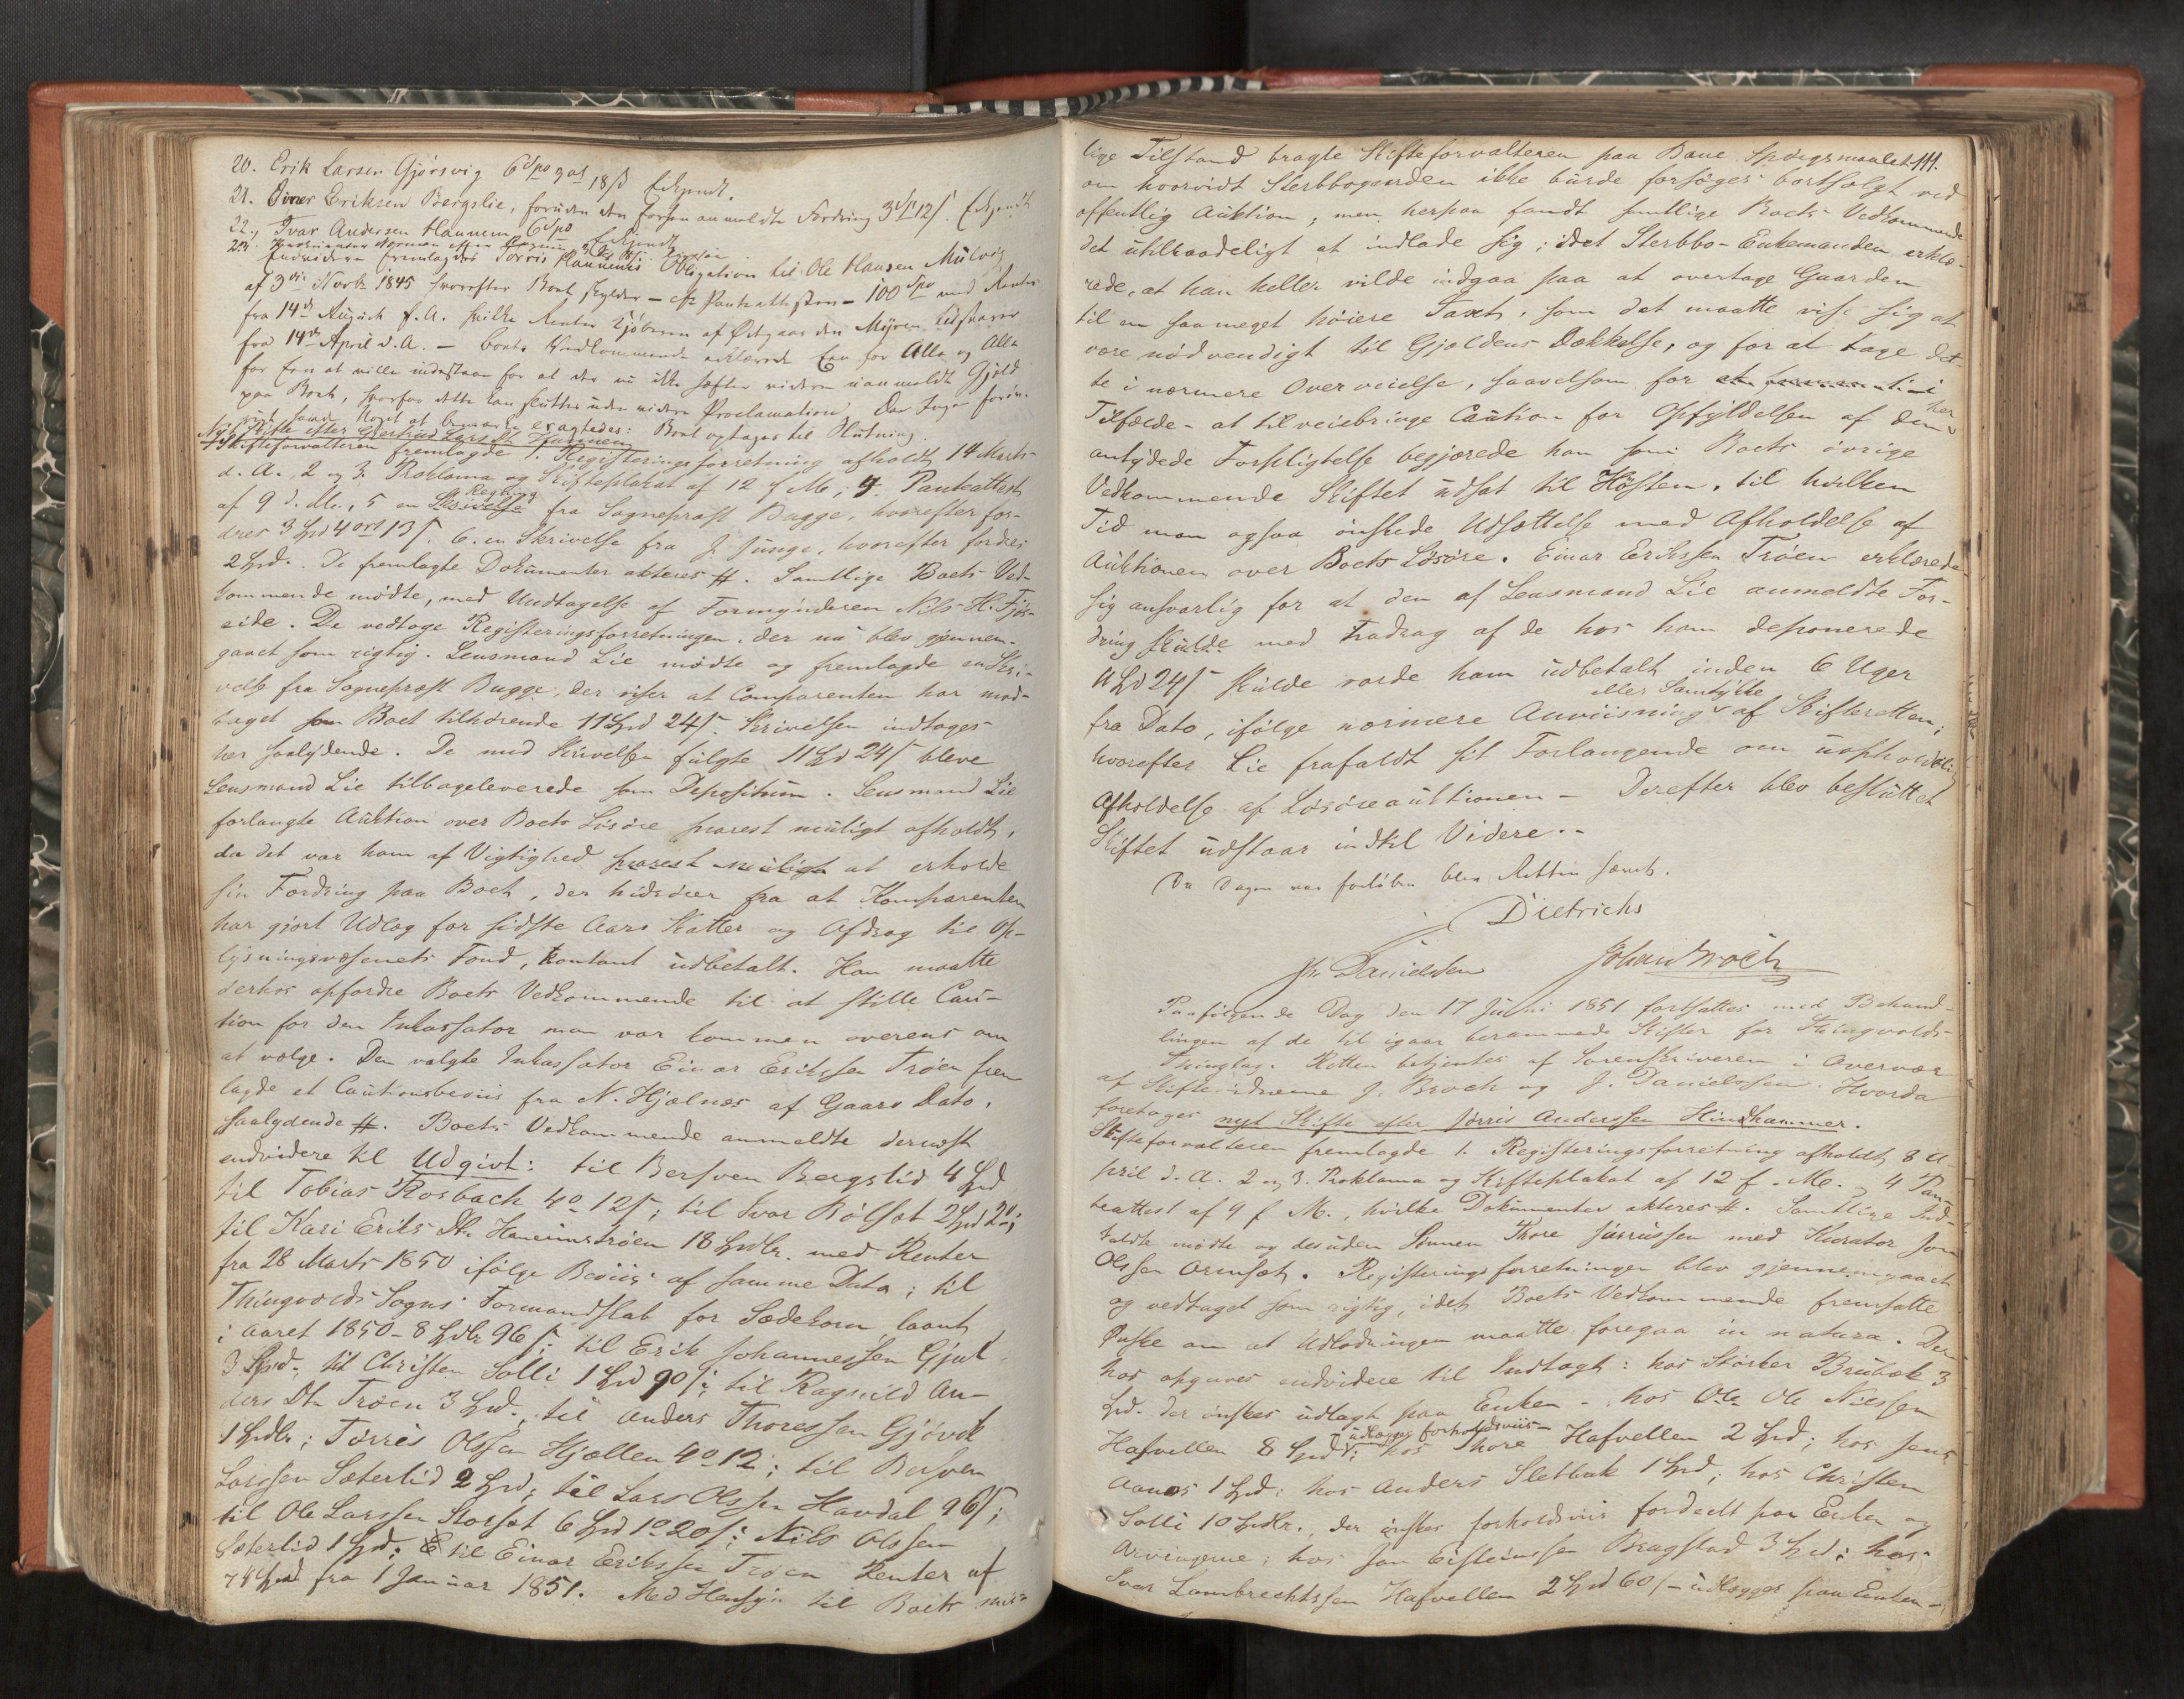 20. Erik Larsen Gjørsvig 6 Spd 3 ort 18 s Erkjendt.
21. Einer Eriksen Bergslie, foruden den forhen anmeldte Fordring 3 12 s. Erkjendt
22., Ivar Andersen Hannem, 6 Spd Erkjendt
23.
Endvidere fremlagdes Tørris Hannem's Obligation til Ole Hansen Mulvig
af 3die Novbr 1845 hvorefter Boet skylder – Panteattesten – 100 Spd med Renter
fra 14de August f. A. hvilke Renter Kjøberen af Ødegaarden Myren tilsvarer
fra 14de April d. A. – Boets Vedkommende erklærede Een for Alle og Alle
for Een at ville indestaae for at der nu ikke hefter videre uanmeldt Gjeld
paa Boet, hvorfor dette kan sluttes uden videre Proclamation. Da Ingen forøv-
rigt havde Noget at bemærke eragtedes: Boet optages til Slutning.
Nyt Skifte efter Gjertrud Lars Dr Trøen
Skifteforvalteren fremlagde 1. Registeringsforretning afholdt 14 Marts
d. A., 2 og 3. Proklama og Skifteplakat af 12 f. M., 4. Panteattest
af 9 d. M., 5 en Regning fra Sognepræst Bugge, hvorefter for-
dres 3 Spd 4 ort 13 s. 6. en Skrivelse fra J. Junge, hvorefter fordres
2 Spd. De fremlagte Dokumenter akteres #. Samtlige Boets Ved-
kommende mødte, med Undtagelse af Formynderen Nils H. Fjøs-
eide. De vedtoge Registeringsforretningen, der nu blev gjennem-
gaaet som rigtig. Lensmand Lie mødte og fremlagde en Skri-
velse fra Sognepræst Bugge, der viser at Comparenten har mod-
taget som Boet tilhørende 11 Spd 24 s. Skrivelsen indtages
her saalydende. De med Skrivelsen fulgte 11 Spd 24 s bleve
Lensmand Lie tilbageleverede som Depositum. Lensmand Lie
forlangte Auktion over Boets Løsøre snarest muligt afholdt,
da det var ham af Vigtighed snarest muligt at erholde
sin Fordring paa Boet, der hidrører fra at Komparenten
har gjort Udlæg for sidste Aars Skatter og Afdrag til Op-
lysningsvæsenets Fond, kontant udbetalt. Han maatte
derhos opfordre Boets Vedkommende til at stille Cau-
tion for den Inkassator man var kommen overens om
at vælge. Den valgte Inkassator Einar Erikssen Trøen frem
lagde et Cautionsbeviis fra N. Hjelnes af Gaars Dato,
saalydende #. Boets Vedkommende anmeldte dernæst
endvidere til Udgivt: til Bersven Bergslid 4 Spd
til Tobias Rosbach 4 o 12 s; til Ivar Bølset 2 Spd 2 o;
til Kari Eriks Dr Haneimstrøen 18 Spdlr. med Renter
fra 28 Marts 1850 ifølge Beviis af samme Dato; til
Thingvolds Sogns Formandskab for Sædekorn laant
i Aaret 1850 – 8 Spdlr 96 s; til Erik Johannessen Gjul
3 Spd., til Christen Solli 1 Spd 90 s; til Ragnild An-
ders Dr Trøen 3 Spd., til Anders Thoressen Gjøvik
1 Spdlr; Tørris Olssen Hjællen 4 o 12; til Bersven
Larssen Sæterlid 2 Spd; til Lars Olssen Havdal 96 s;
til Ole Larssen Storset 6 Spd 1 o 20 s; Nils Olssen
Sæterlid 1 Spd; til Einar Erikssen Trøen Renter af
74 Spd fra 1 Januar 1851. Med Hensyn til Boets mis-
111.
lige Tilstand bragte Skifteforvalteren paa Bane Spørgsmaalet
om hvorvidt Sterbbogaarden ikke burde forsøges bortsolgt ved
offentlig Auktion; men herpaa fandt samtlige Boets Vedkommende
det utilraadeligt at indlade sig; idet Sterbbo-Enkemanden erklæ-
rede, at han heller vilde indgaa paa at overtage Gaarden
til en saa meget høiere Taxt, som det maatte vise sig at
være nødvendigt til Gjældens Dækkelse, og for at tage det-
te i nærmere Overveielse, saavelsom for i
Tilfælde – at tilveiebringe Caution for Opfyldelsen af den her
antydede Forpligtelse begjærede han som Boets øvrige
Vedkommende Skiftet udsat til Høsten, til hvilken
Tid man ogsaa ønskede Udsættelse med Afholdelse af
Auktionen over Boets Løsøre. Einar Erikssen Trøen erklærede
sig ansvarlig for at den af Lensmand Lie anmeldte For-
dring skulde med Fradrag af de hos ham deponerede
11 Spd 24 s skulde vorde ham udbetalt inden 6 Uger
fra Dato, ifølge nærmere Anviisning eller Samtykke af Skifteretten;
hvorefter Lie frafaldt sit Forlangende om uopholdelig
Afholdelse af Løsøreauktionen – Derefter blev besluttet
Skiftet udstaar indtil Videre. –
Da Dagen var forløben blev Retten hævet.
Dietrichs
Jh. Danielsen Johan Broch
Paafølgende Dag den 17 Juni 1851 fortsattes med Behand-
lingen af de til igaar berammede Skifter for Thingvolds
Thinglag. Retten betjentes af Sorenskriveren i Overvær
af Skiftevidnerne J. Broch og J. Danielssen. Hvorda
foretages nyt Skifte efter Jørris Anderssen Hindhammer.
Skifteforvalteren fremlagde 1. Registeringsforretning afholdt 8 A-
pril d. A. 2 og 3. Proklama og Skifteplakat af 12 f. M. og 4 Pan-
teattest af 9 f. M., hvilke Dokumenter akteres #. Samtlige Ind-
kaldte mødte og desuden Sønnen Thore Jørrissen med Kurator Jon
Olssen Aremsæt. Registeringsforretningen blev gjennemgaaet
og vedtaget som rigtig, idet Boets Vedkommende fremsatte
Ønske om at Udlodningen maatte foregaa in natura. Der-
hos opgaves endvidere til Indtægt: hos Størker Brubæk 3
Spd. der ønskes udlagt paa Enken –, hos Ole Nilssen
Hafvellen 8 Spd udlægges forholdsviis –; hos Thore Hafvellen 2 Spd; hos Jens
Aanæs 1 Spd; hos Anders Sletbak 1 Spd; hos Christen
Solli 10 Spdlr., der ønskes forholdsviis fordeelt paa Enken og
Arvingerne; hos Jon Eisteinssen Bragstad 3 Spd; hos
Ivar Lambrechtssen Hafvellen 2 Spd 60 s – udlægges paa Enken –;